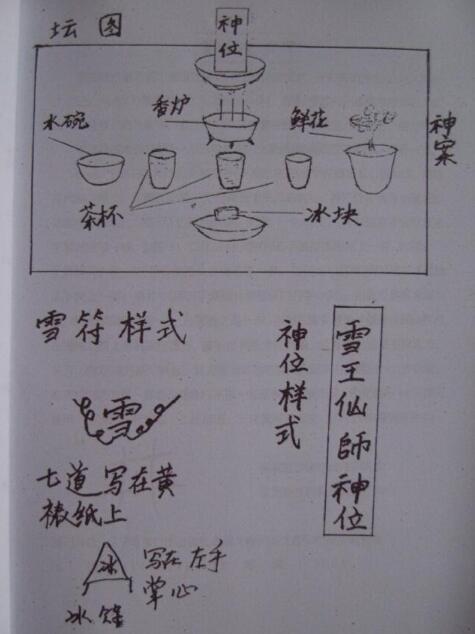 坛图
神位
香炉
水碗
鲜花
神案
茶杯
冰块
雪符样式
神位样式
雪王仙師神位
雪
七道写在黄
裱纸上
冰
写在左手
掌心
冰锋